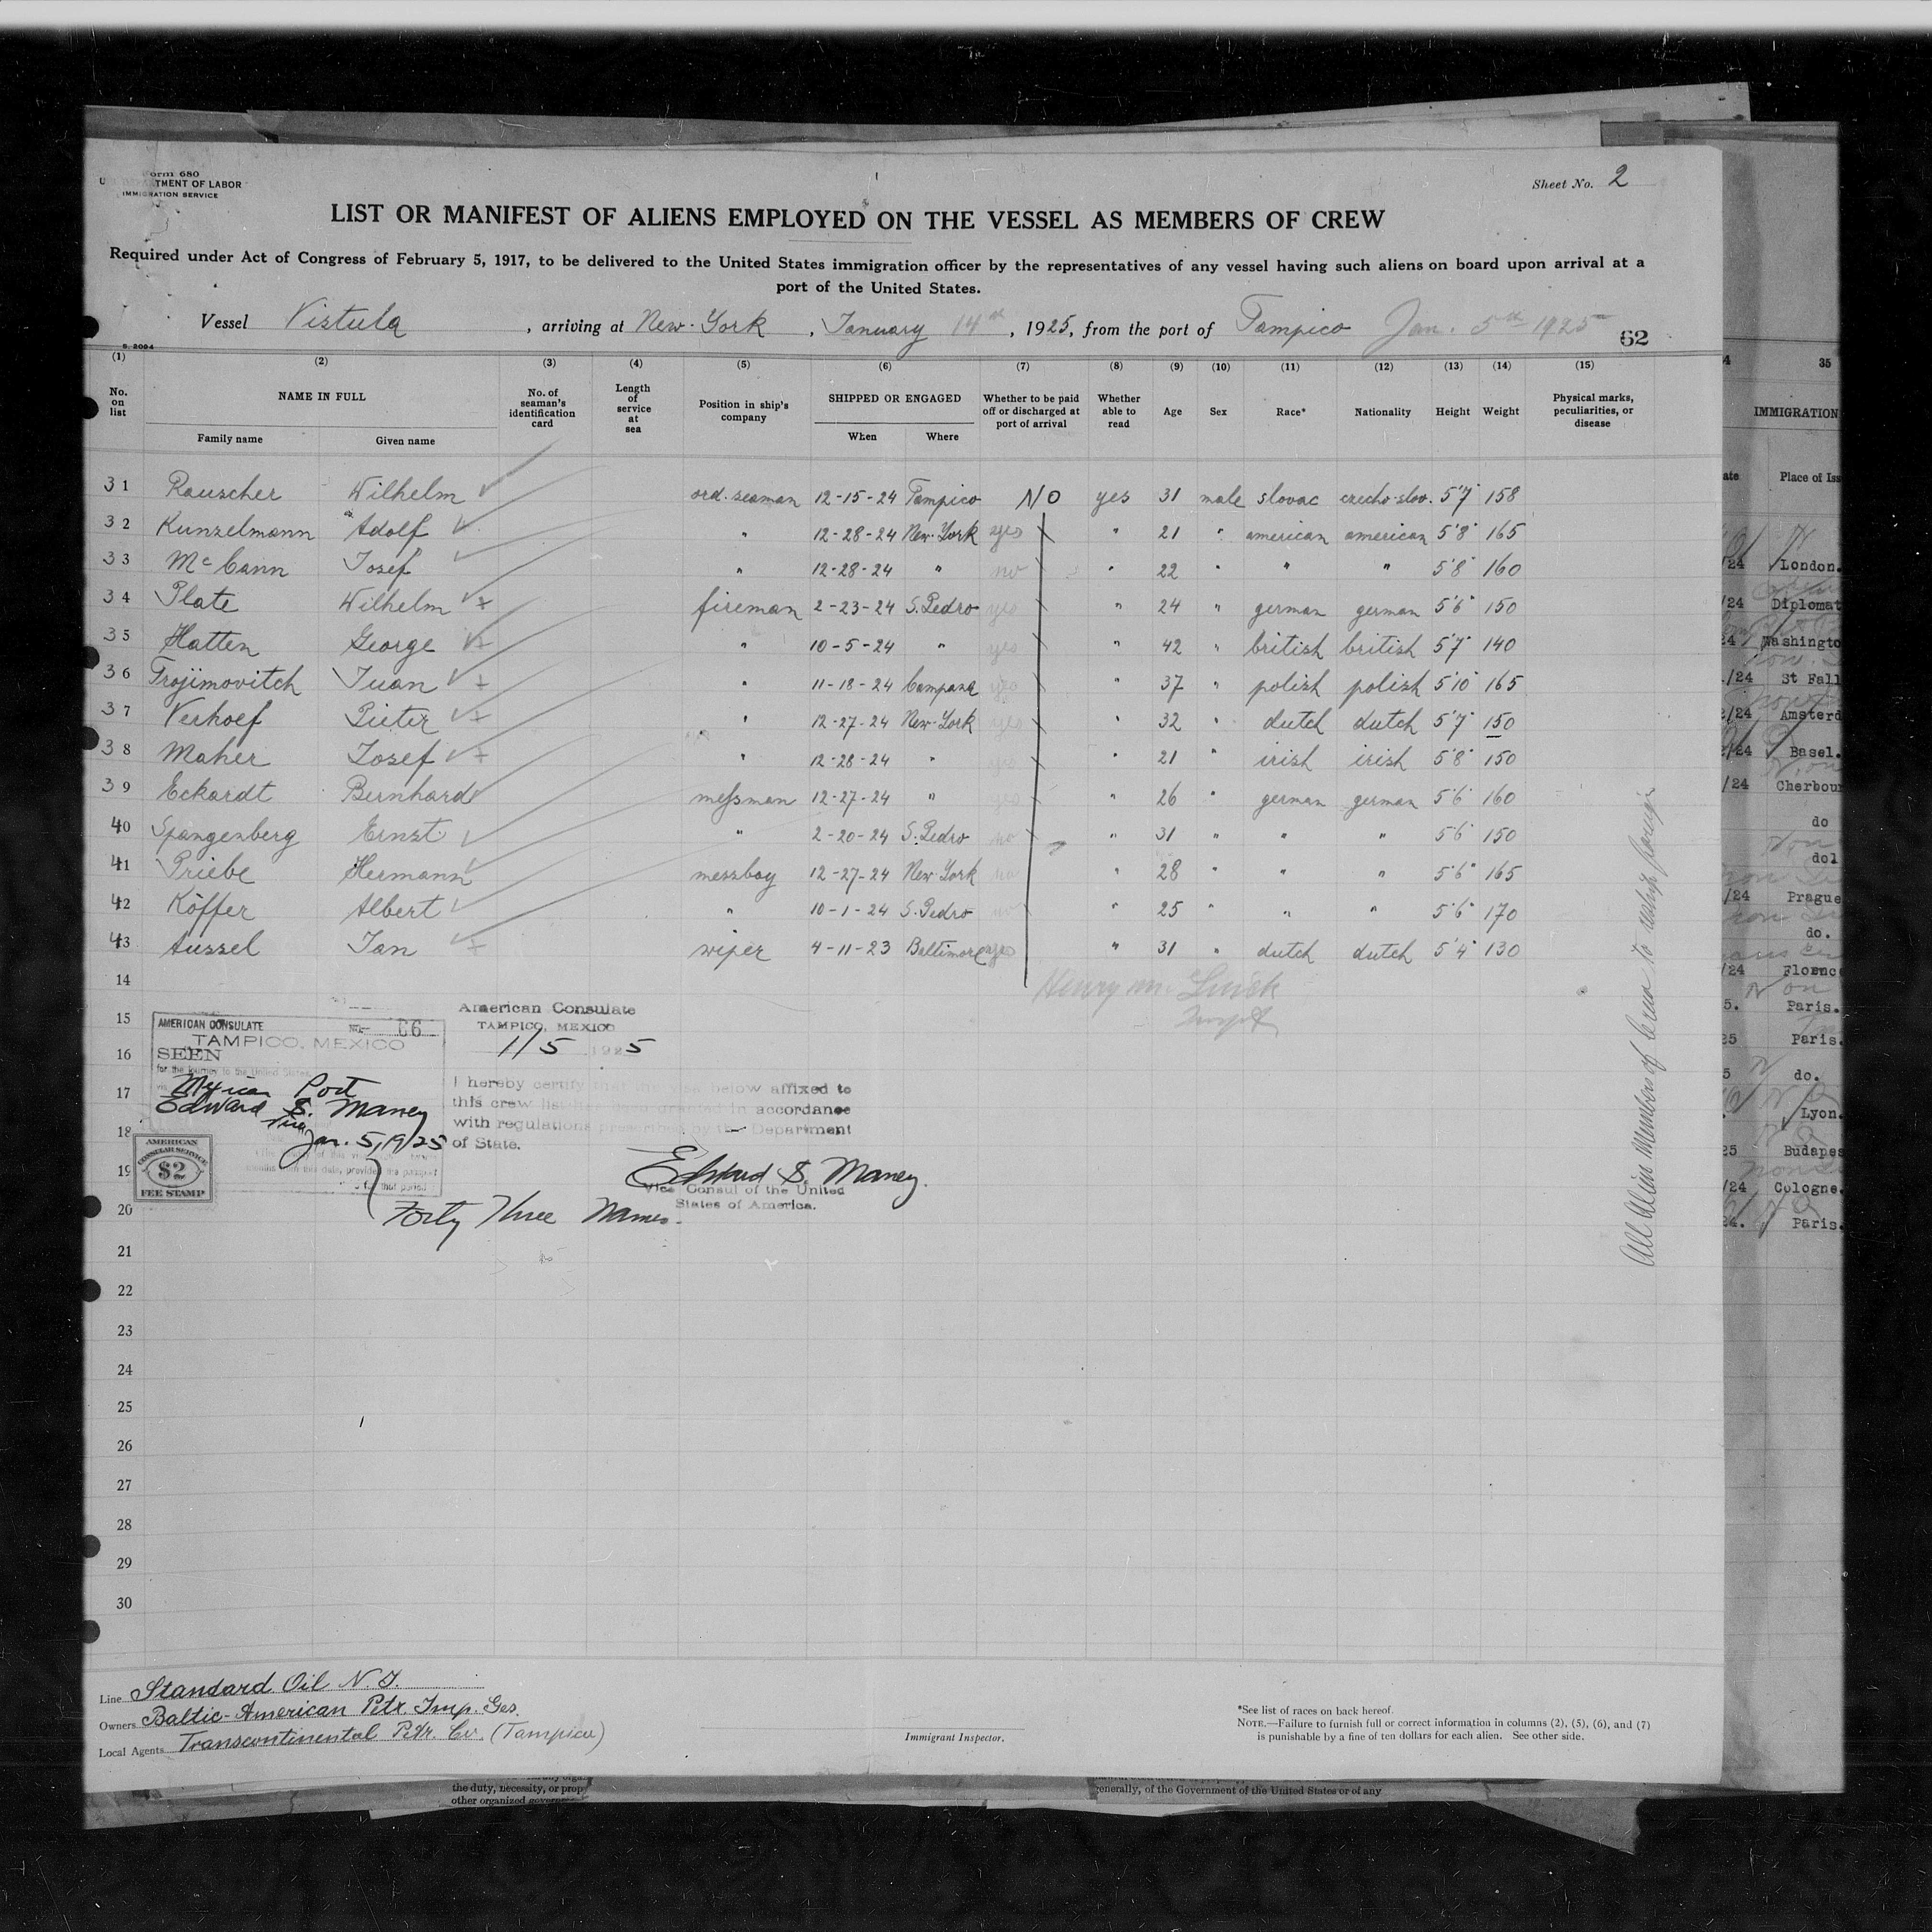 Form 680
TMENT OF LABOR
IMMIGRATION SERVICE
Sheet No. 2
LIST OR MANIFEST OF ALIENS EMPLOYED ON THE VESSEL AS MEMBERS OF CREW
Required under Act of Congress of February 5, 1917, to be delivered to the United States immigration officer by the representatives of any vessel having such aliens on board upon arrival at a
port of the United States.
Vessel Vistula, arriving at New-York, January 14th, 1925, from the port of Tampico Jan. 5th 1925
62
S. 2004
(1) (2) (3) (4) (5) (6) (7) (8) (9) (10) (11) (12) (13) (14) (15)
No. on list NAME IN FULL Family name Given name No. of seaman's identification card Length of service at sea Position in ship's company SHIPPED OR ENGAGED When Where Whether to be paid off or discharged at port of arrival Whether able to read Age Sex Race* Nationality Height Weight Physical marks, peculiarities, or disease
31 Rauscher Wilhelm ord. seaman 12-15-24 Tampico No yes 31 male slovac czecho-slov. 5'7" 158
32 Kunzelmann Adolf " 12-28-24 New-York yes " 21 " american american 5'8" 165
33 McCann Josef " 12-28-24 " no " 22 " " " 5'8" 160
34 Plate Wilhelm fireman 2-23-24 S. Pedro yes " 24 " german german 5'6" 150
35 Hatten George " 10-5-24 " yes " 42 " british british 5'7" 140
36 Trojimovitch Juan " 11-18-24 Campana yes " 37 " polish polish 5'10" 165
37 Verhoef Pieter " 12-27-24 New-York yes " 32 " dutch dutch 5'7" 150
38 Maher Josef " 12-28-24 " yes " 21 " irish irish 5'8" 150
39 Eckardt Bernhard messman 12-27-24 " yes " 26 " german german 5'6" 160
40 Spangenberg Ernst " 2-20-24 S. Pedro no " 31 " " " 5'6" 150
41 Priebe Hermann messboy 12-27-24 New-York no " 28 " " " 5'6" 165
42 Köffer Albert " 10-1-24 S. Pedro no " 25 " " " 5'6" 170
43 Aussel Jan wiper 4-11-23 Baltimore yes " 31 " dutch dutch 5'4" 130
14
15
16
17
18
19
20
21
22
23
24
25
26
27
28
29
30
AMERICAN CONSULATE No. 06
TAMPICO, MEXICO
SEEN
for the journey to the United States.
Mexican Port
Edward S. Maney
Jan. 5, 1925
AMERICAN
CONSULAR SERVICE
$2
FEE STAMP
American Consulate
TAMPICO, MEXICO
1/5 1925
I hereby certify that the visa below affixed to
this crew list has been granted in accordance
with regulations prescribed by the Department
of State.
Edward S. Maney.
Vice Consul of the United
States of America.
Forty Three Names.
All Alien Members of Crew to reship foreign
Line Standard Oil N.J.
Owners Baltic-American Petr. Imp. Ges.
Local Agents Transcontinental Petr. Co. (Tampico)
Immigrant Inspector.
*See list of races on back hereof.
NOTE.—Failure to furnish full or correct information in columns (2), (5), (6), and (7)
is punishable by a fine of ten dollars for each alien. See other side.
the duty, necessity, or prop
other organized
generally, of the Government of the United States or of any
35
IMMIGRATION
Place of Iss
London.
Diplomat
Washingto
St Fall
Amsterd
Basel.
Cherbour
do
do
Prague
do.
Florence
Paris.
Paris.
do.
Lyon.
Budapes
Cologne.
Paris.